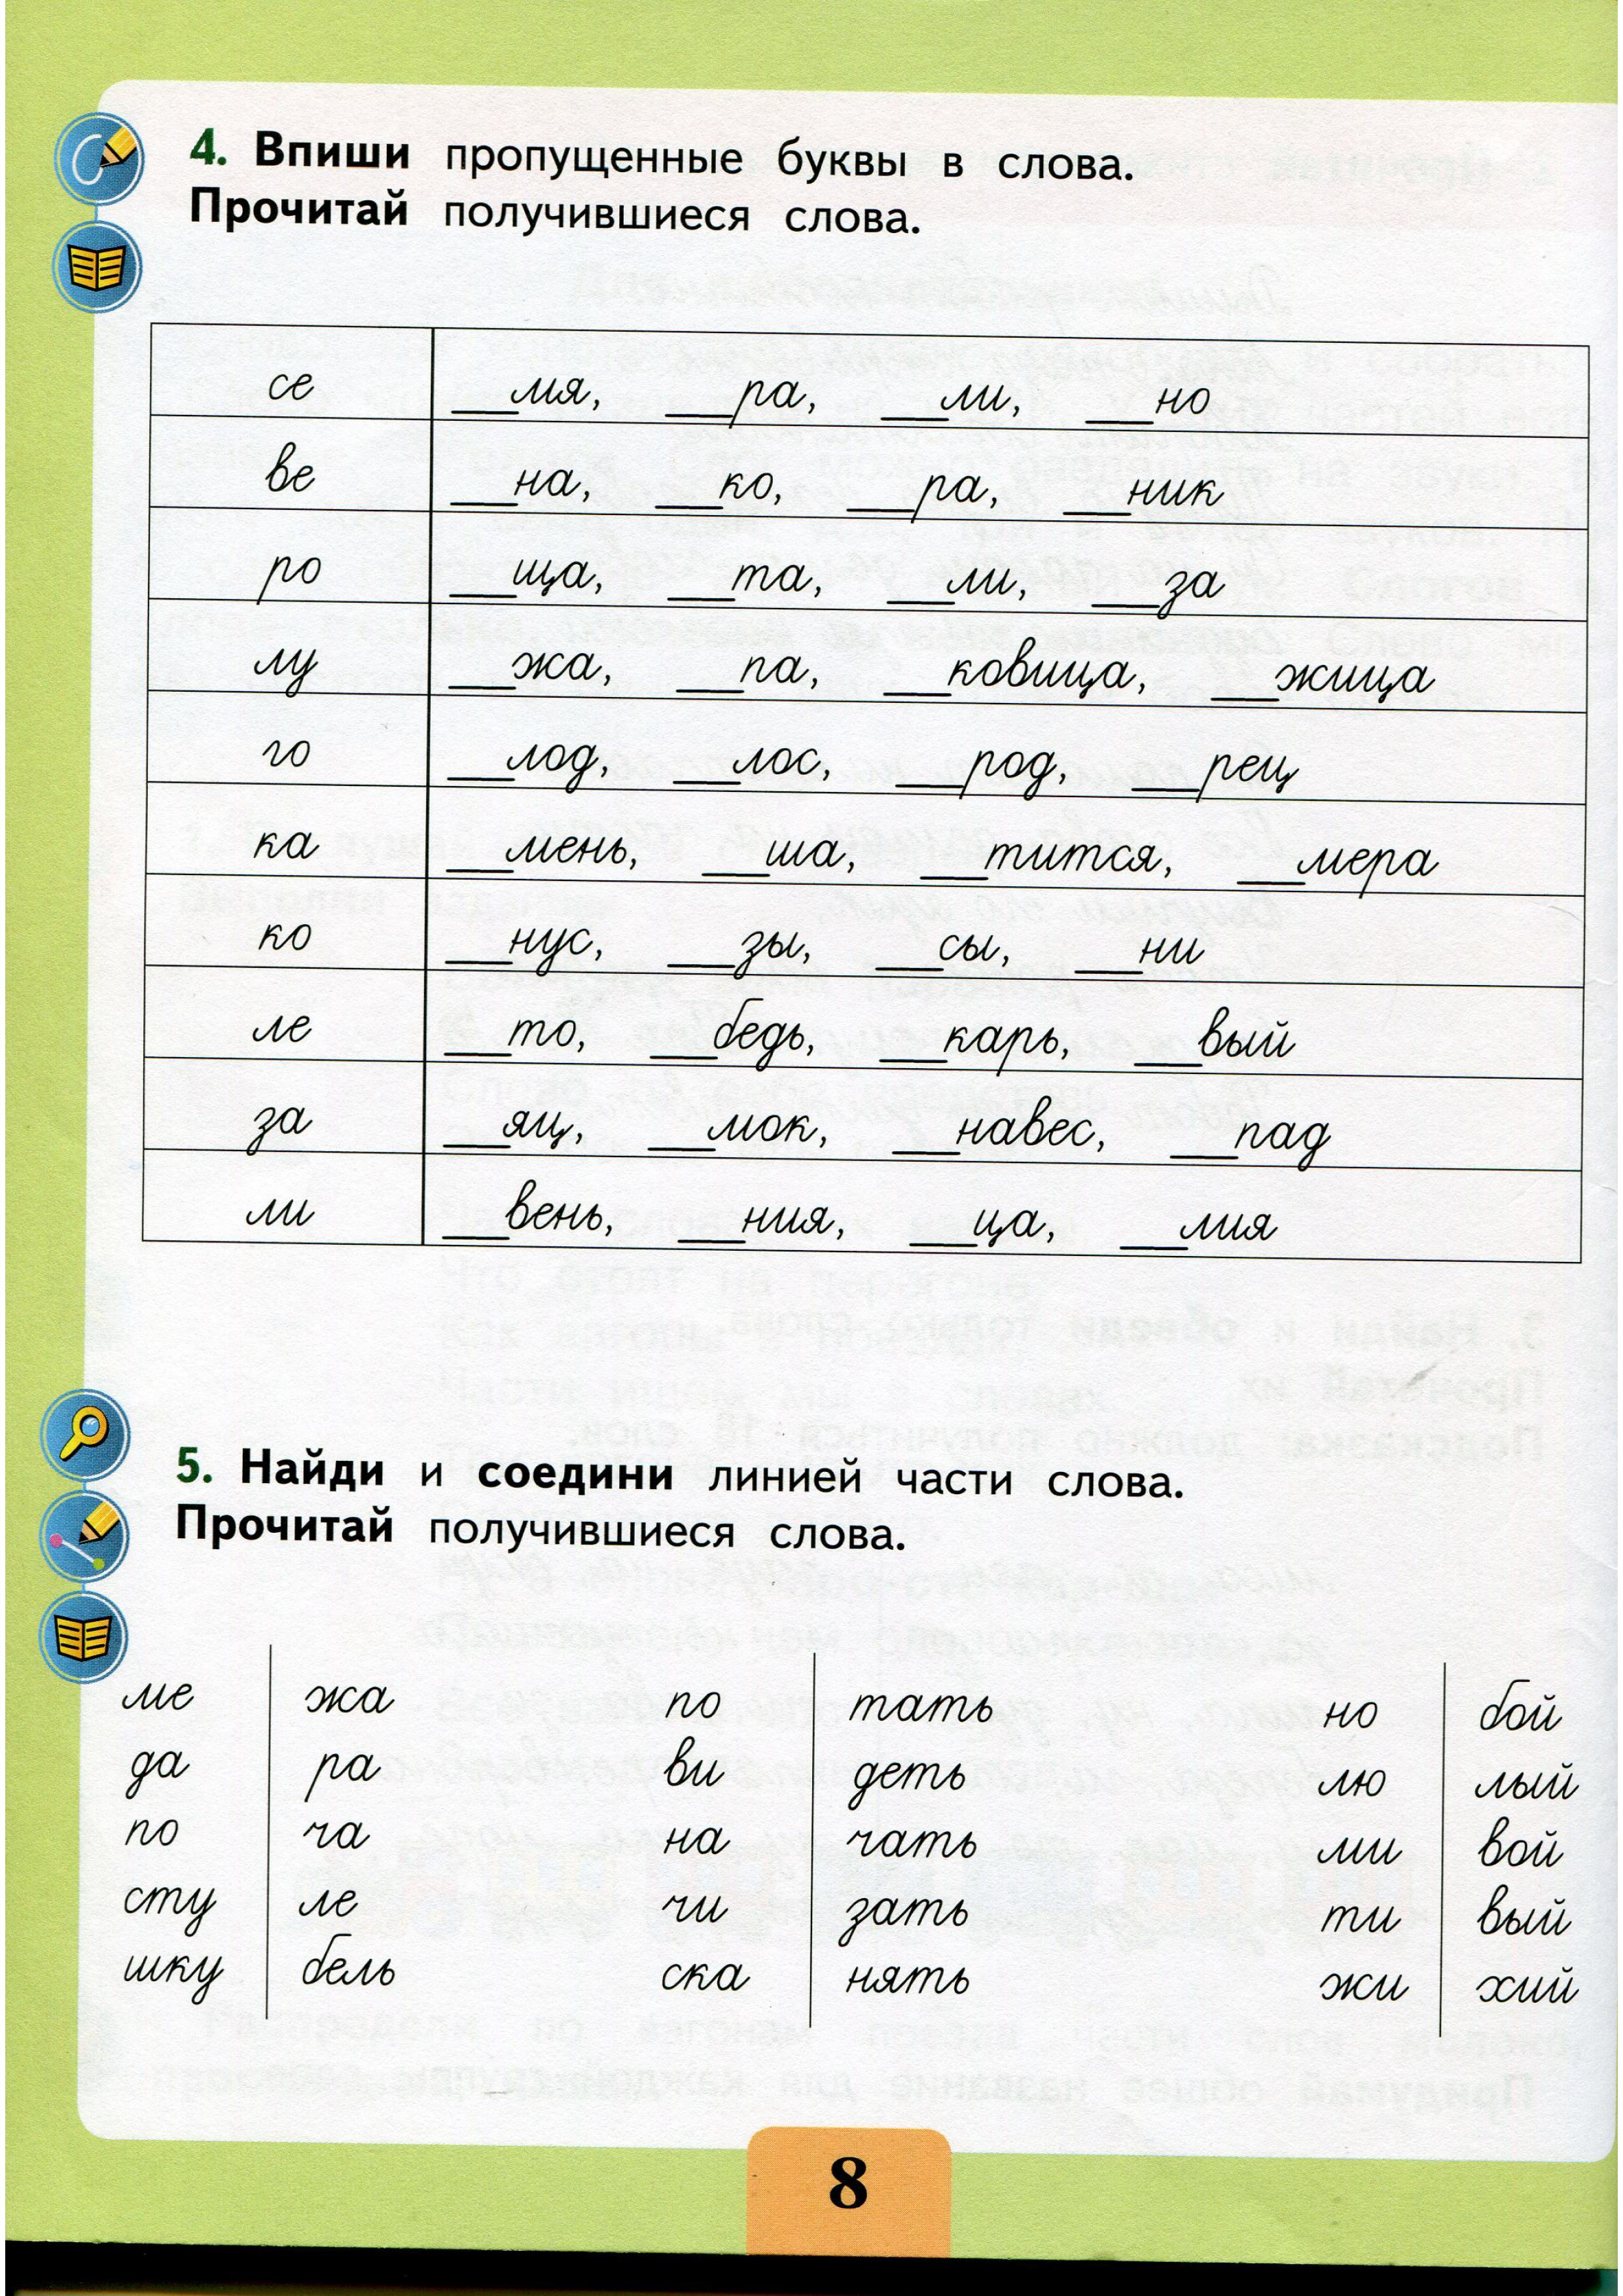 4. Впиши пропущенные буквы в слова.
Прочитай получившиеся слова.
се __мя, __ра, __ли, __но
ве __на, __ко, __ра, __ник
ро __ща, __та, __ли, __за
лу __жа, __па, __ковица, __жица
го __лод, __лос, __род, __рец
ка __мень, __ша, __тится, __мера
ко __нус, __зы, __сы, __ни
ле __то, __бедь, __карь, __вый
за __яц, __мок, __навес, __пад
ли __вень, __ния, __ца, __лия
5. Найди и соедини линией части слова.
Прочитай получившиеся слова.
ме жа по тать но бой
да ра ви деть лю лый
по ча на чать ми вой
сту ле чи зать ти вый
шку бель ска нять жи хий
8